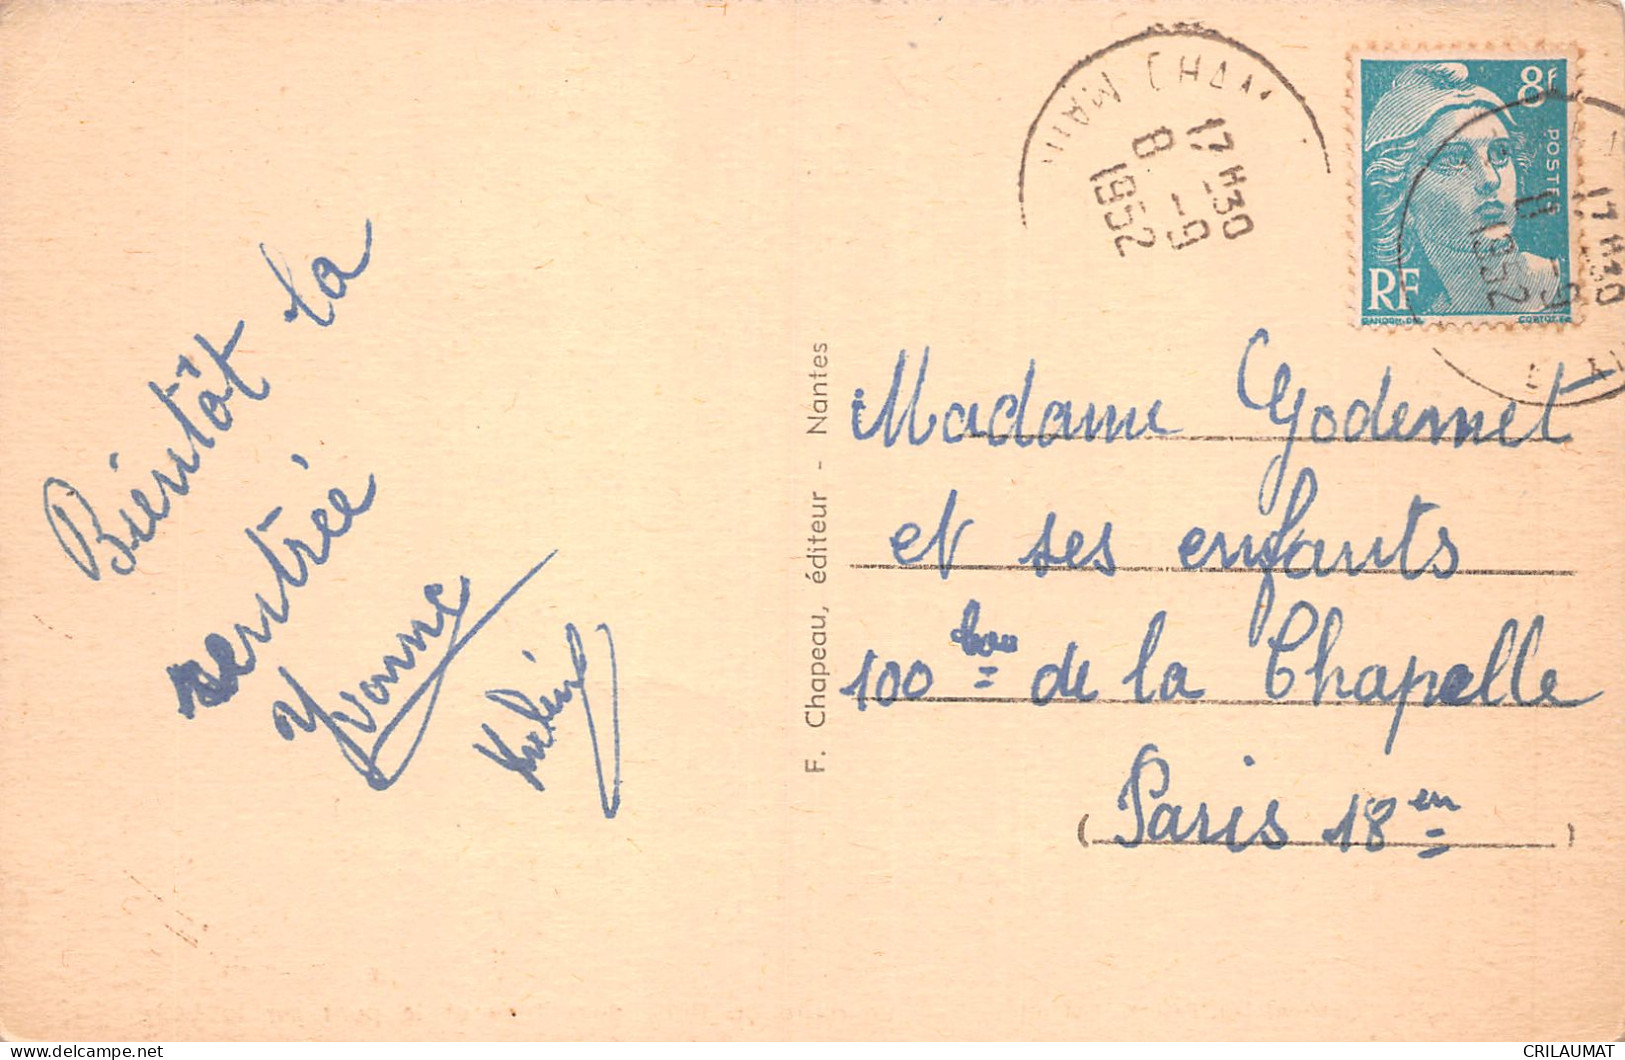 Bientôt la
rentrée
Yvonne
F. Chapeau, éditeur - Nantes
17 H30
8 -9
1952
8F
POSTES
RF
GANDON.DEL.
CORTOT.
17 H30
-9
1952
Madame Godernet
et ses enfants
100 de la Chapelle
(Paris 18en)
CRILAUMAT